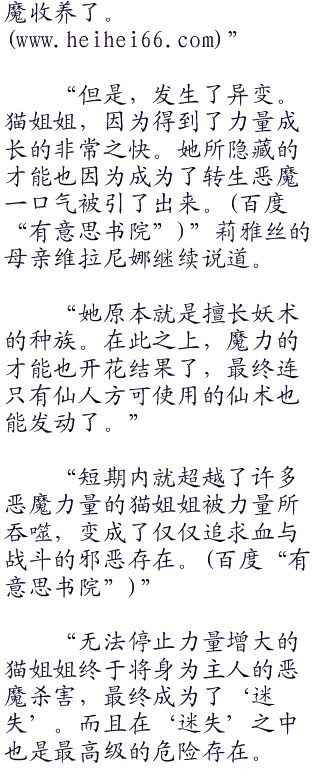 魔收养了。
(www.heihei66.com)”
“但是，发生了异变。
猫姐姐，因为得到了力量成
长的非常之快。她所隐藏的
才能也因为成为了转生恶魔
一口气被引了出来。(百度
“有意思书院”)”莉雅丝的
母亲维拉尼娜继续说道。
“她原本就是擅长妖术
的种族。在此之上，魔力的
才能也开花结果了，最终连
只有仙人方可使用的仙术也
能发动了。”
“短期内就超越了许多
恶魔力量的猫姐姐被力量所
吞噬，变成了仅仅追求血与
战斗的邪恶存在。(百度“有
意思书院”)”
“无法停止力量增大的
猫姐姐终于将身为主人的恶
魔杀害，最终成为了‘迷
失’。而且在‘迷失’之中
也是最高级的危险存在。